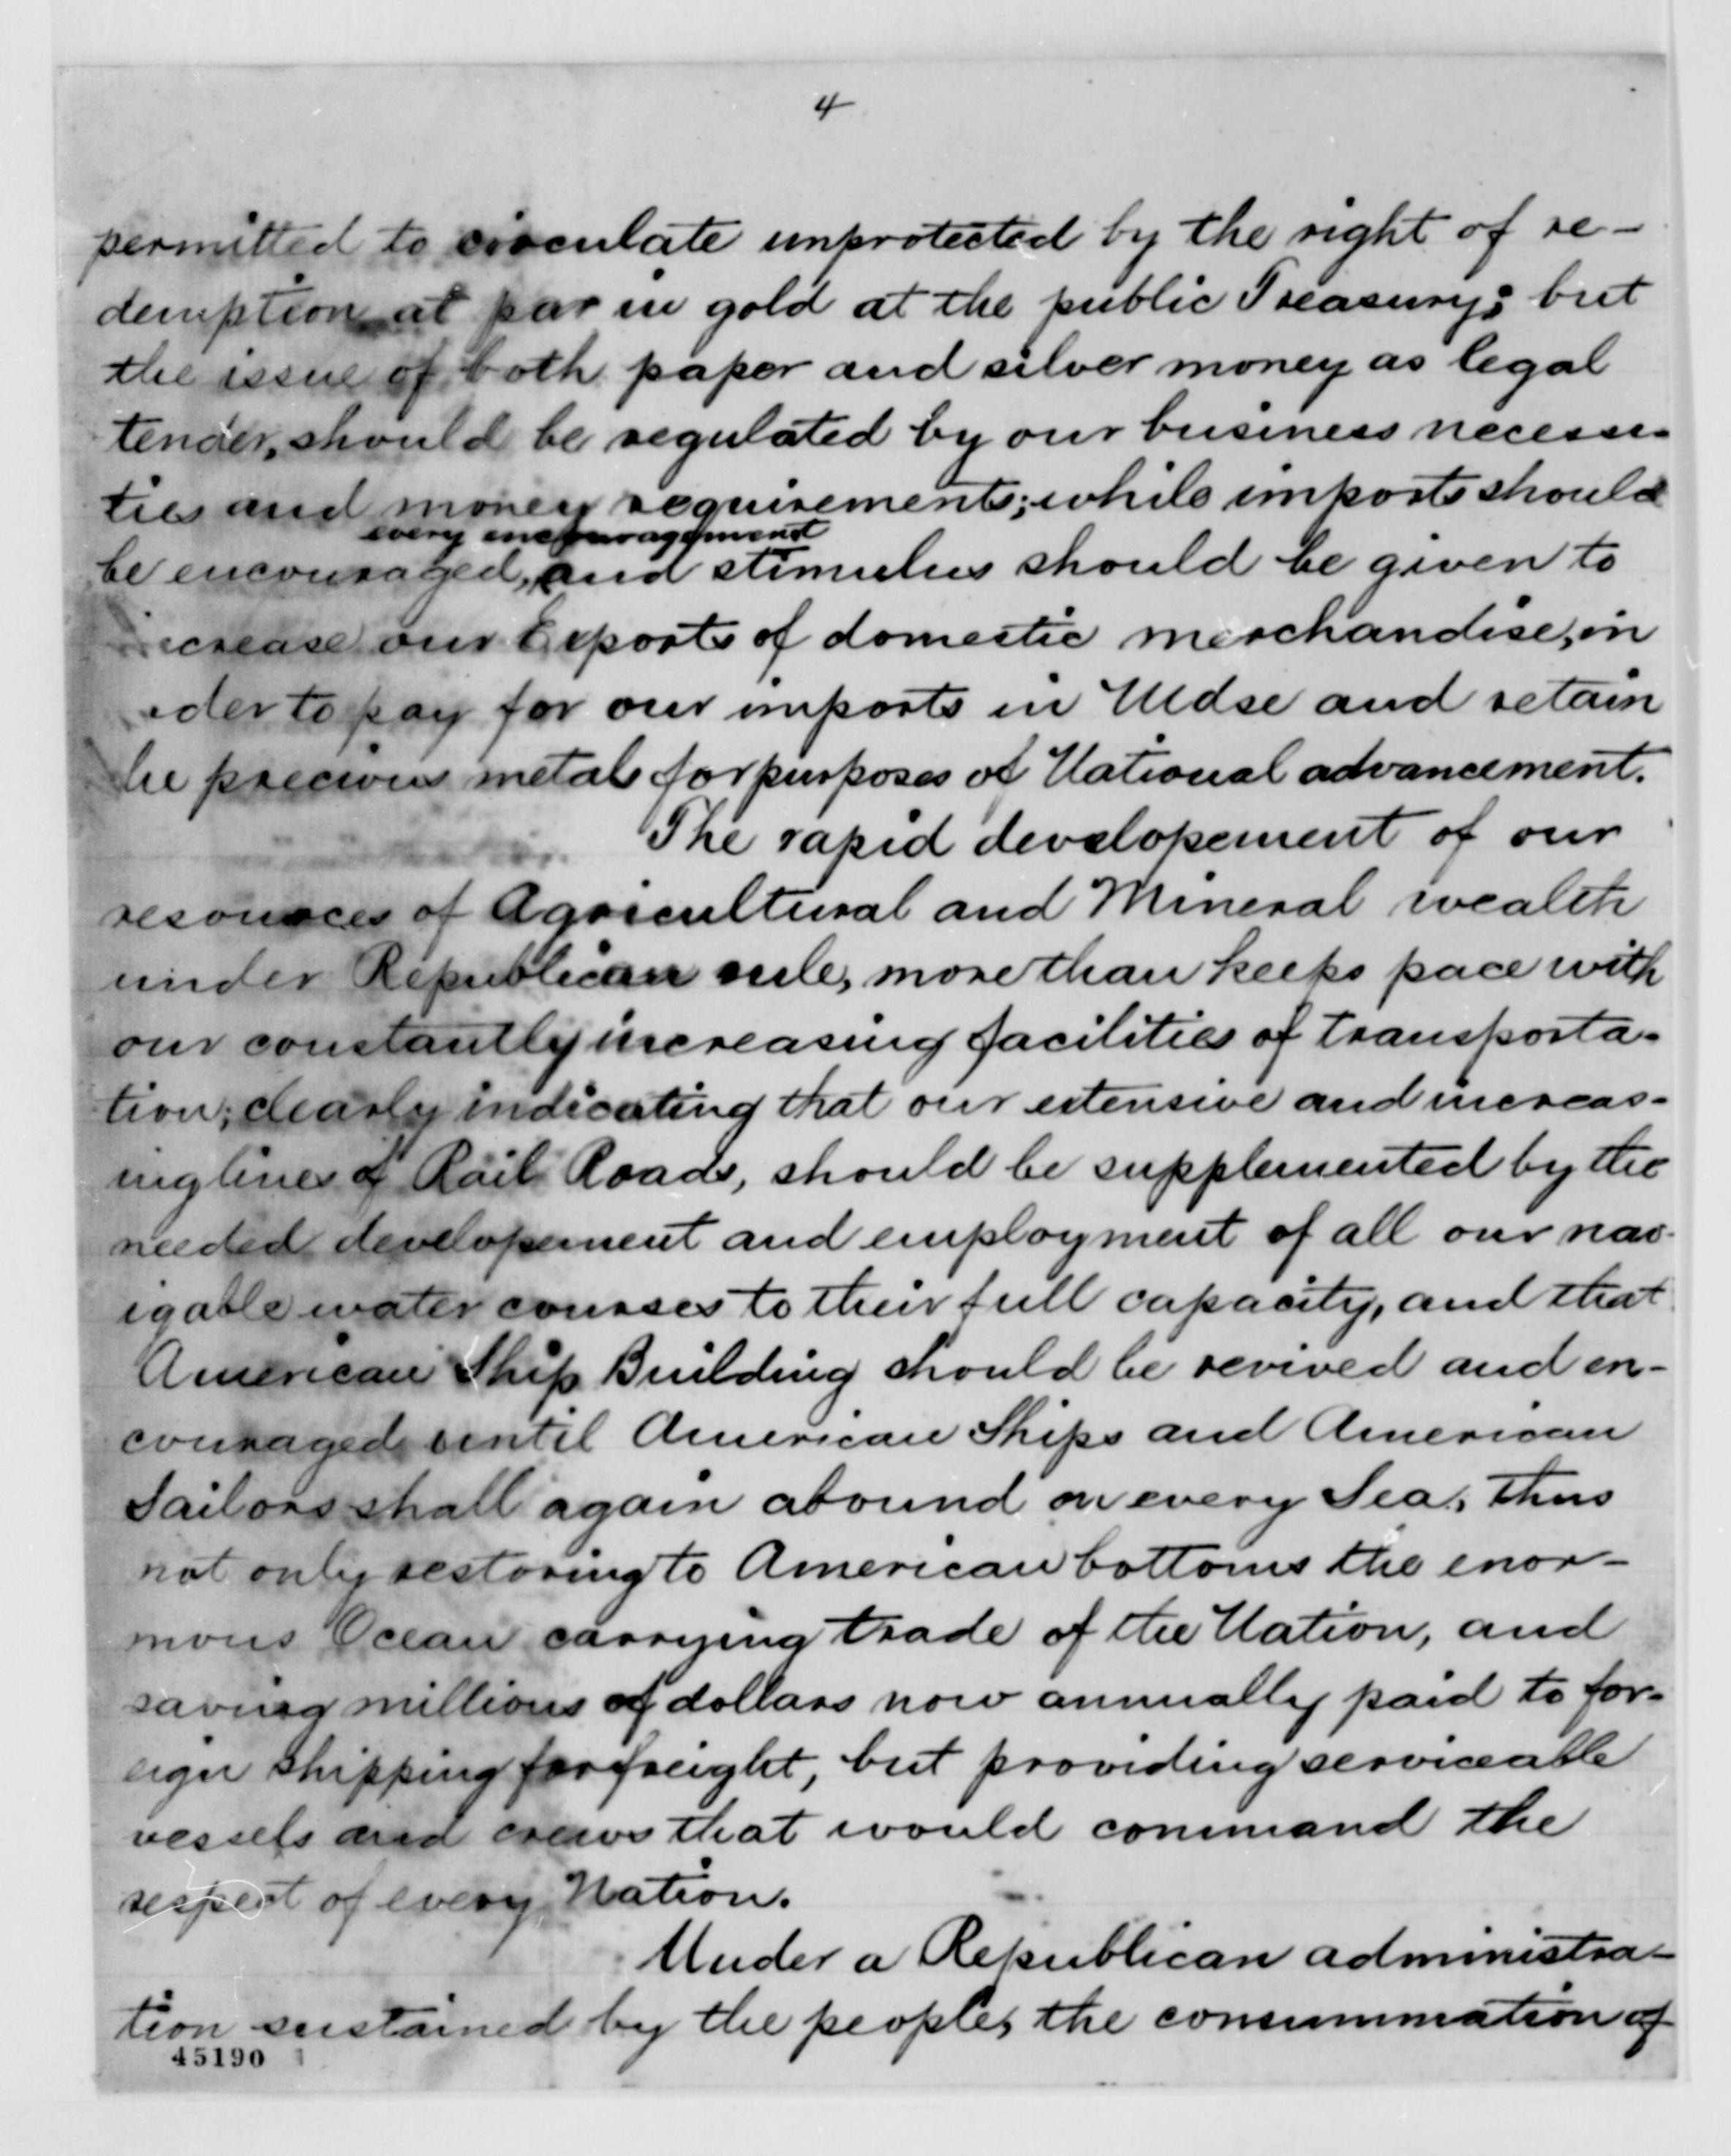 4
permitted to circulate unprotected by the right of re-
demption at par in gold at the public Treasury; but
the issue of both paper and silver money as legal
tender, should be regulated by our business necessi-
ties and money requirements; while imports should
every encouragement
be encouraged, and stimulus should be given to
increase our Exports of domestic merchandise, in
order to pay for our imports in Mdse and retain
the precious metals for purposes of National advancement.
The rapid developement of our
resources of Agricultural and Mineral wealth
under Republican rule, more than keeps pace with
our constantly increasing facilities of transporta-
tion; clearly indicating that our extensive and increas-
ing lines of Rail Roads, should be supplemented by the
needed developement and employment of all our nav-
igable water courses to their full capacity, and that
American Ship Building should be revived and en-
couraged until American Ships and American
Sailors shall again abound on every Sea, thus
not only restoring to American bottoms the enor-
mous Ocean carrying trade of the Nation, and
saving millions of dollars now annually paid to for-
eign shipping for freight, but providing serviceable
vessels and crews that would command the
respect of every Nation.
Under a Republican administra-
tion sustained by the people, the consummation of
45190